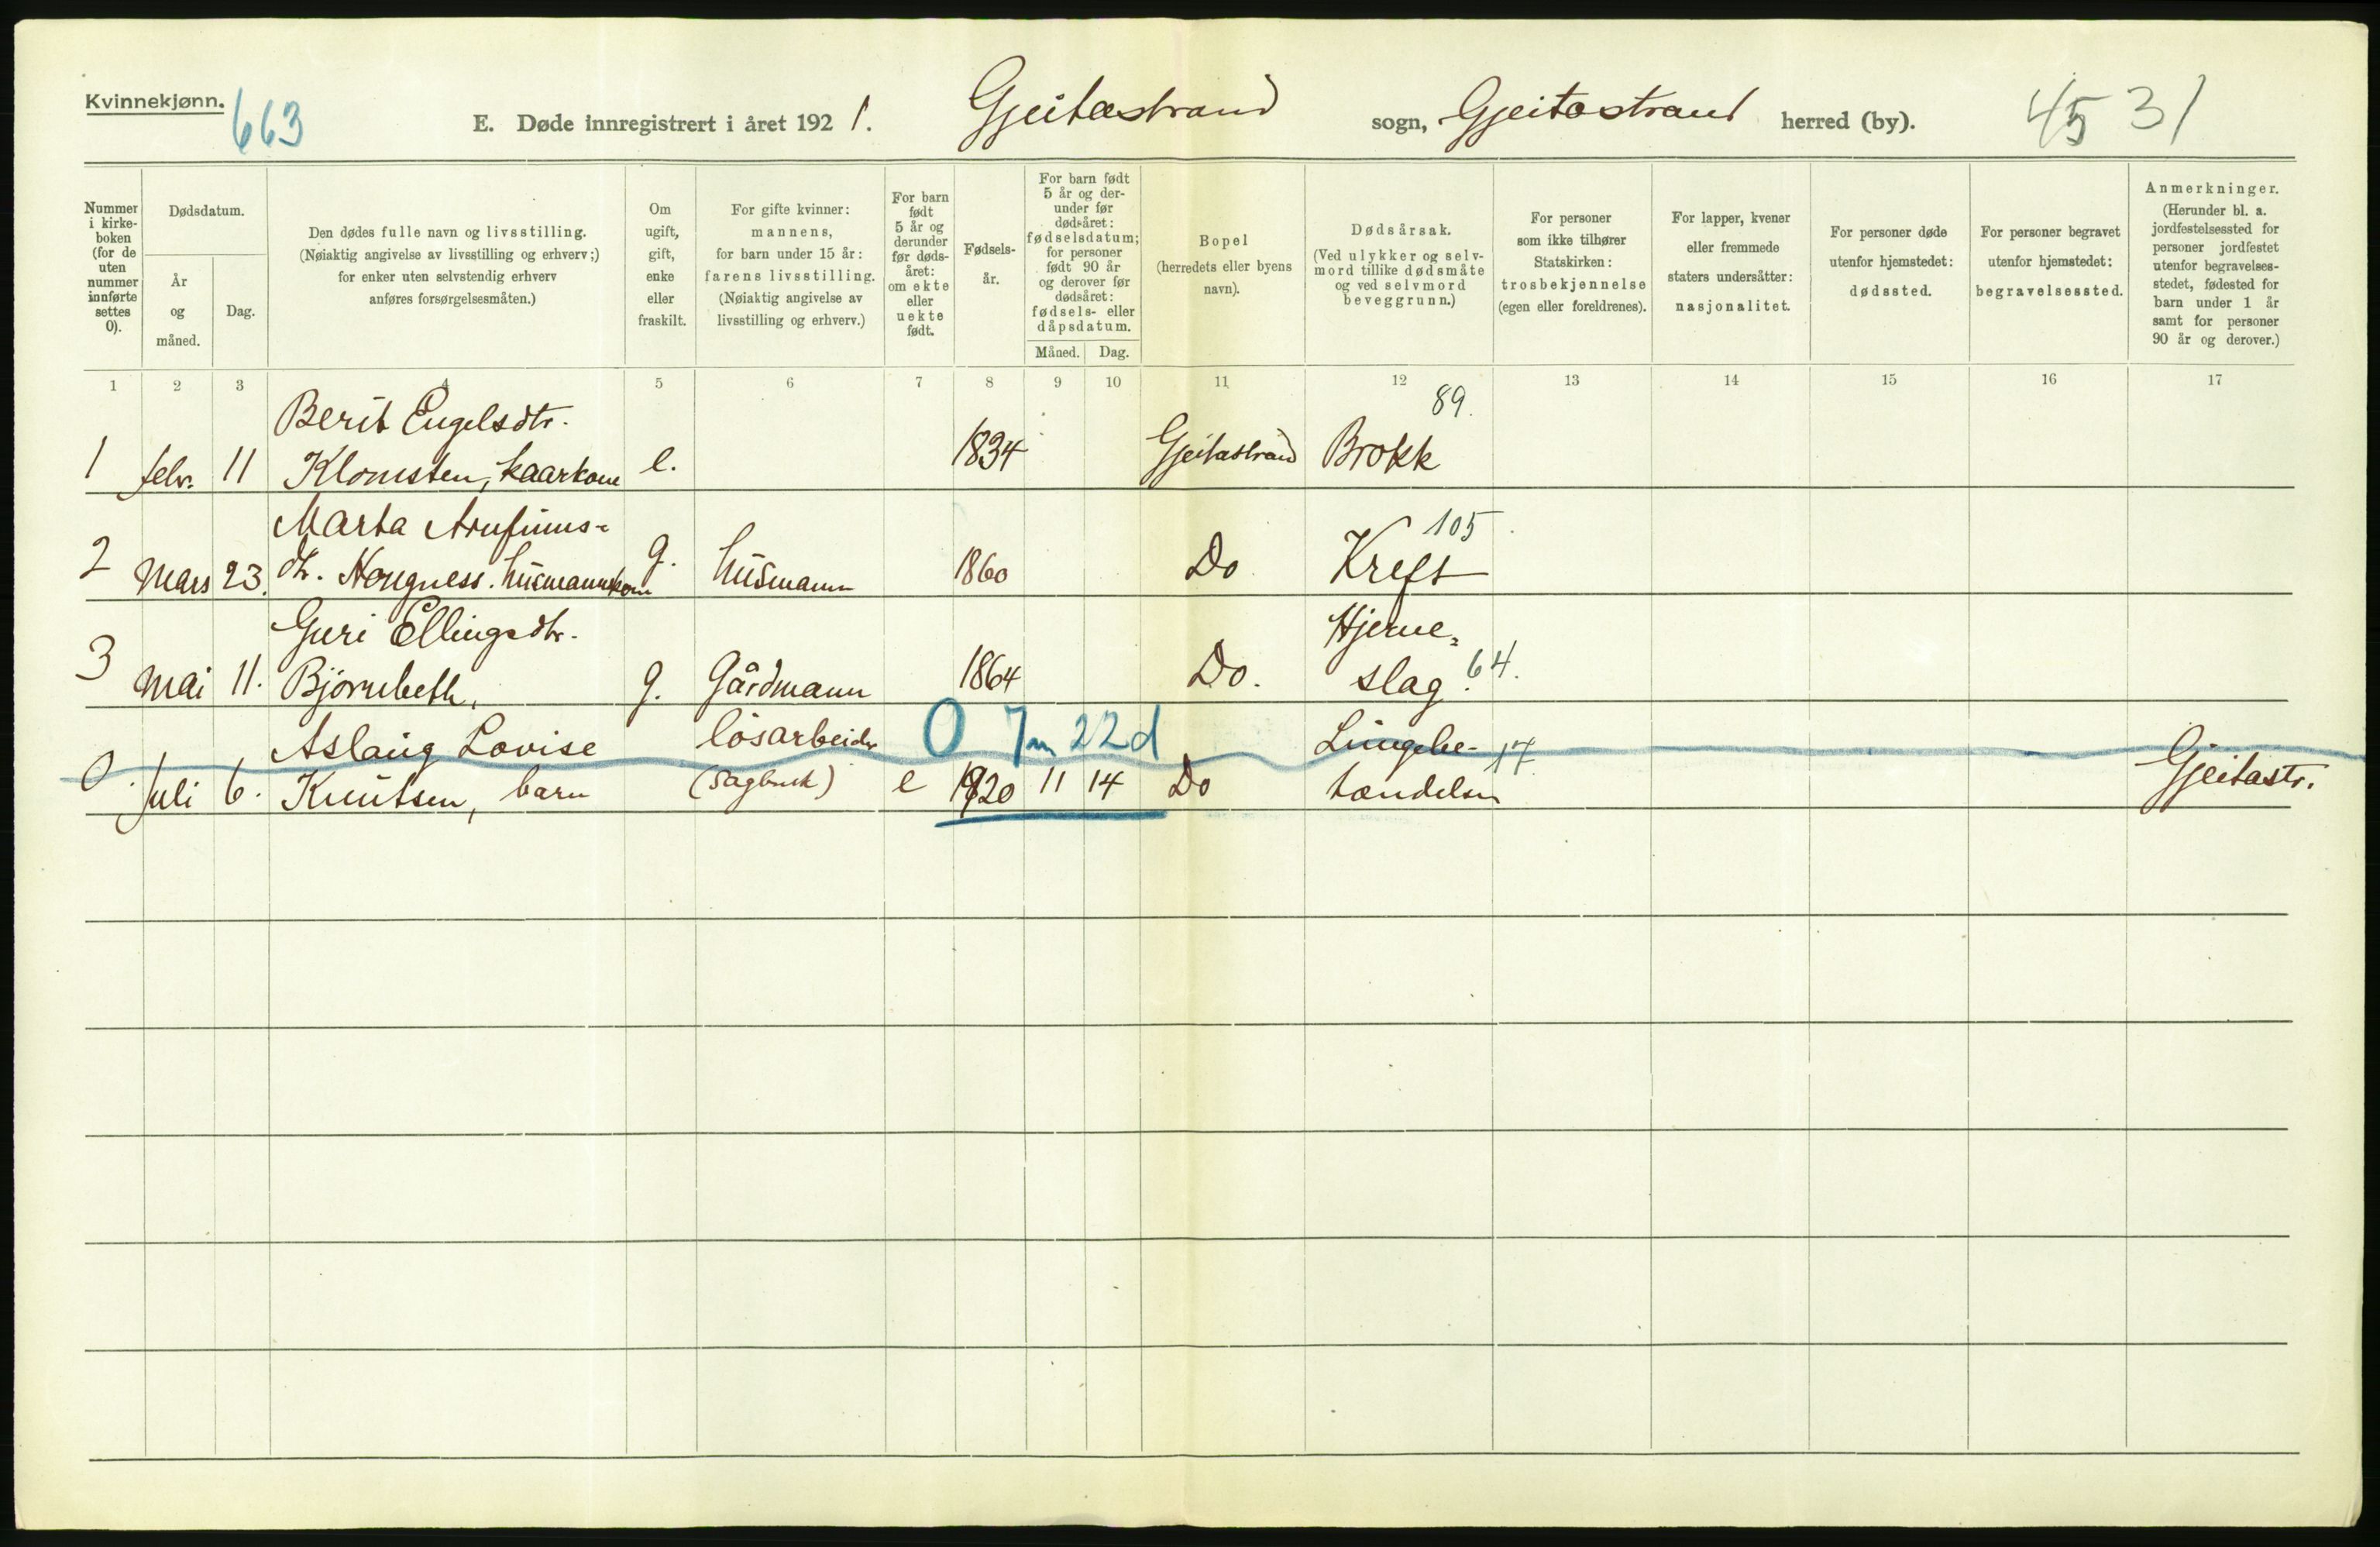 Kvinnekjønn.
663
E. Døde innregistrert i året 1921.
Gjeitastrand sogn, Gjeitastrand herred (by).
45 31
Nummer i kirkeboken (for de uten nummer innførte settes 0).
Dødsdatum.
År og måned.
Dag.
Den dødes fulle navn og livsstilling.
(Nøiaktig angivelse av livsstilling og erhverv;)
for enker uten selvstendig erhverv
anføres forsørgelsesmåten.)
Om ugift, gift, enke eller fraskilt.
For gifte kvinner:
mannens,
for barn under 15 år:
farens livsstilling.
(Nøiaktig angivelse av
livsstilling og erhverv.)
For barn født 5 år og derunder før dødsåret: om ekte eller uekte født.
Fødselsår.
For barn født 5 år og derunder før dødsåret: fødselsdatum; for personer født 90 år og derover før dødsåret: fødsels- eller dåpsdatum.
Måned. Dag.
Bopel
(herredets eller byens
navn).
Dødsårsak.
(Ved ulykker og selvmord tillike dødsmåte og ved selvmord beveggrunn.)
For personer
som ikke tilhører
Statskirken:
trosbekjennelse
(egen eller foreldrenes).
For lapper, kvener
eller fremmede
staters undersåtter:
nasjonalitet.
For personer døde
utenfor hjemstedet:
dødssted.
For personer begravet
utenfor hjemstedet:
begravelsessted.
Anmerkninger.
(Herunder bl. a.
jordfestelsessted for
personer jordfestet
utenfor begravelses-
stedet, fødested for
barn under 1 år
samt for personer
90 år og derover.)
1 2 3 4 5 6 7 8 9 10 11 12 13 14 15 16 17
Berit Engelsdtr. 89.
1 febr. 11 Klomsten, kaarkone e. 1834 Gjeitastrand Brokk
Marta Arnfinns- 105
2 Mars 23. dtr. Hougness. husmannkone g. husmann 1860 Do Kreft
Guri Ellingsdtr. Hjerne-
3 Mai 11. Björnbeth, g. Gårdmann 1864 Do. slag. 64.
Aslaug Lovise lösarbeider 0 7m 22d Lungebe- 17
0. Juli 6. Knutsen, barn (sagbruk) e 1920 11 14 Do tændelse Gjeitastr.